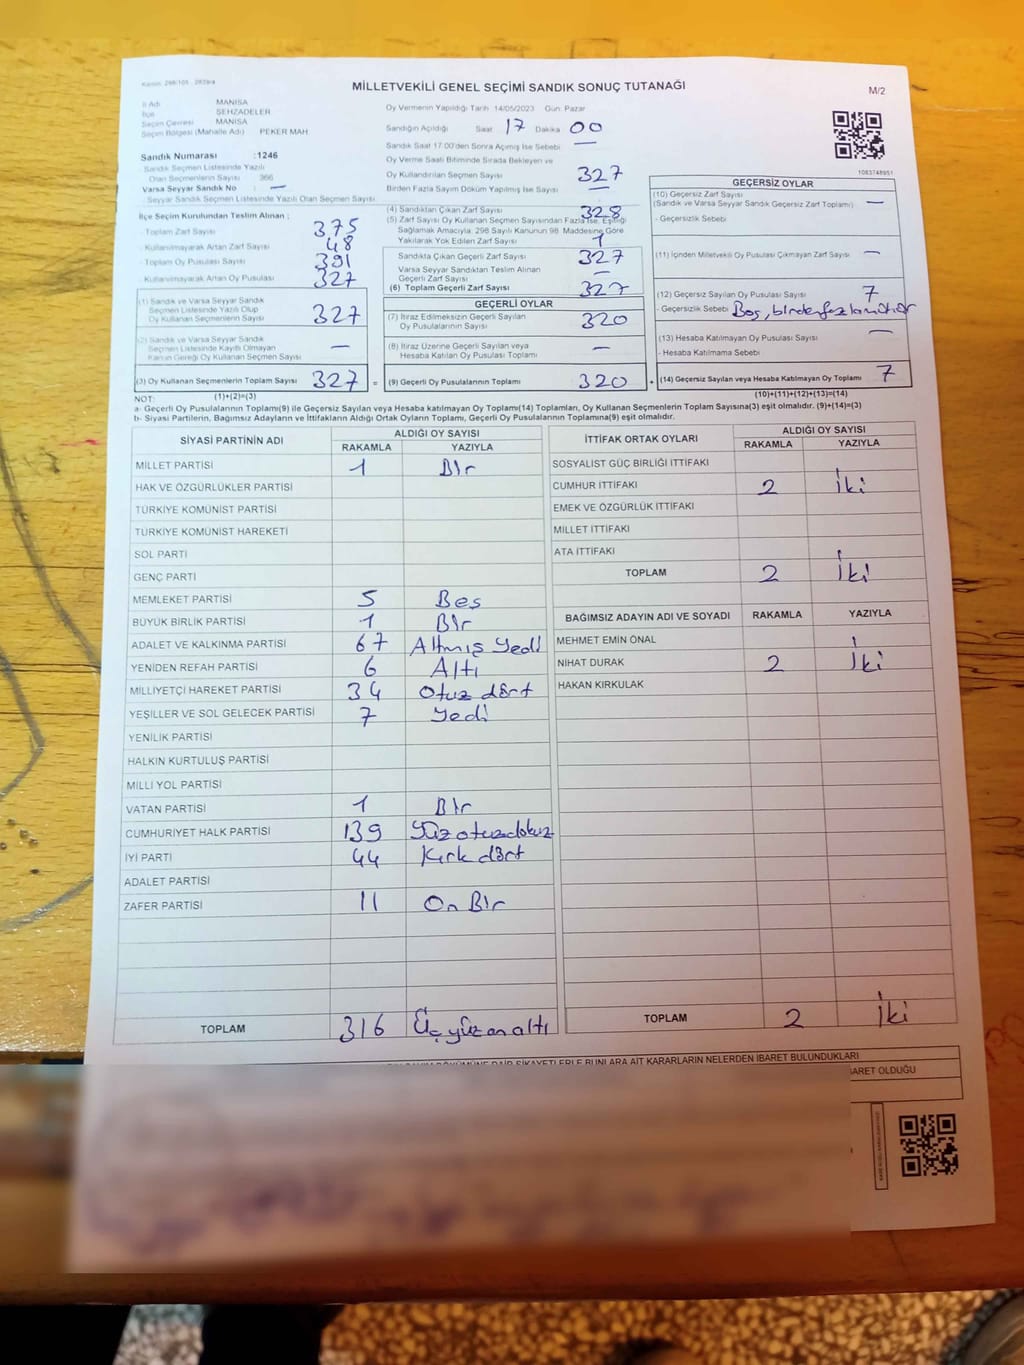 Kanun: 298/105 - 2839/a
MİLLETVEKİLİ GENEL SEÇİMİ SANDIK SONUÇ TUTANAĞI
M/2
İl Adı MANİSA
İlçe ŞEHZADELER
Seçim Çevresi MANİSA
Seçim Bölgesi (Mahalle Adı) PEKER MAH
Sandık Numarası :1246
Sandık Seçmen Listesinde Yazılı
Olan Seçmenlerin Sayısı 366
Varsa Seyyar Sandık No : —
Seyyar Sandık Seçmen Listesinde Yazılı Olan Seçmen Sayısı
İlçe Seçim Kurulundan Teslim Alınan ;
- Toplam Zarf Sayısı 375
- Kullanılmayarak Artan Zarf Sayısı 48
- Toplam Oy Pusulası Sayısı 391
- Kullanılmayarak Artan Oy Pusulası 327
(1) Sandık ve Varsa Seyyar Sandık
Seçmen Listesinde Yazılı Olup
Oy Kullanan Seçmenlerin Sayısı 327
(2) Sandık ve Varsa Seyyar Sandık
Seçmen Listesinde Kayıtlı Olmayan
Kanun Gereği Oy Kullanan Seçmen Sayısı —
(3) Oy Kullanan Seçmenlerin Toplam Sayısı 327 =
Oy Vermenin Yapıldığı Tarih 14/05/2023 Gün: Pazar
Sandığın Açıldığı Saat 17 Dakika 00
Sandık Saat 17:00'den Sonra Açımış İse Sebebi —
Oy Verme Saati Bitiminde Sırada Bekleyen ve
Oy Kullandırılan Seçmen Sayısı 327
Birden Fazla Sayım Döküm Yapılmış İse Sayısı —
(4) Sandıktan Çıkan Zarf Sayısı 328
(5) Zarf Sayısı Oy Kullanan Seçmen Sayısından Fazla İse, Eşitliği
Sağlamak Amacıyla, 298 Sayılı Kanunun 98. Maddesine Göre
Yakılarak Yok Edilen Zarf Sayısı 1
Sandıkta Çıkan Geçerli Zarf Sayısı 327
Varsa Seyyar Sandıktan Teslim Alınan
Geçerli Zarf Sayısı —
(6) Toplam Geçerli Zarf Sayısı 327
GEÇERLİ OYLAR
(7) İtiraz Edilmeksizin Geçerli Sayılan
Oy Pusulalarının Sayısı 320
(8) İtiraz Üzerine Geçerli Sayılan veya
Hesaba Katılan Oy Pusulası Toplamı —
(9) Geçerli Oy Pusulalarının Toplamı 320 +
1083748951
GEÇERSİZ OYLAR
(10) Geçersiz Zarf Sayısı
(Sandık ve Varsa Seyyar Sandık Geçersiz Zarf Toplamı) —
- Geçersizlik Sebebi
(11) İçinden Milletvekili Oy Pusulası Çıkmayan Zarf Sayısı —
(12) Geçersiz Sayılan Oy Pusulası Sayısı 7
- Geçersizlik Sebebi Boş, birden fazla mühür
(13) Hesaba Katılmayan Oy Pusulası Sayısı —
- Hesaba Katılmama Sebebi
(14) Geçersiz Sayılan veya Hesaba Katılmayan Oy Toplamı 7
NOT: (1)+(2)=(3) (10)+(11)+(12)+(13)=(14)
a- Geçerli Oy Pusulalarının Toplamı(9) ile Geçersiz Sayılan veya Hesaba katılmayan Oy Toplamı(14) Toplamları, Oy Kullanan Seçmenlerin Toplam Sayısına(3) eşit olmalıdır. (9)+(14)=(3)
b- Siyasi Partilerin, Bağımsız Adayların ve İttifakların Aldığı Ortak Oyların Toplamı, Geçerli Oy Pusulalarının Toplamına(9) eşit olmalıdır.
SİYASİ PARTİNİN ADI ALDIĞI OY SAYISI
RAKAMLA YAZIYLA
MİLLET PARTİSİ 1 Bir
HAK VE ÖZGÜRLÜKLER PARTİSİ
TÜRKİYE KOMÜNİST PARTİSİ
TÜRKİYE KOMÜNİST HAREKETİ
SOL PARTİ
GENÇ PARTİ
MEMLEKET PARTİSİ 5 Beş
BÜYÜK BİRLİK PARTİSİ 1 Bir
ADALET VE KALKINMA PARTİSİ 67 Altmış Yedi
YENİDEN REFAH PARTİSİ 6 Altı
MİLLİYETÇİ HAREKET PARTİSİ 34 Otuz dört
YEŞİLLER VE SOL GELECEK PARTİSİ 7 Yedi
YENİLİK PARTİSİ
HALKIN KURTULUŞ PARTİSİ
MİLLİ YOL PARTİSİ
VATAN PARTİSİ 1 Bir
CUMHURİYET HALK PARTİSİ 139 Yüz otuz dokuz
İYİ PARTİ 44 Kırk dört
ADALET PARTİSİ
ZAFER PARTİSİ 11 On Bir
TOPLAM 316 Üç yüz on altı
İTTİFAK ORTAK OYLARI ALDIĞI OY SAYISI
RAKAMLA YAZIYLA
SOSYALİST GÜÇ BİRLİĞİ İTTİFAKI
CUMHUR İTTİFAKI 2 İki
EMEK VE ÖZGÜRLÜK İTTİFAKI
MİLLET İTTİFAKI
ATA İTTİFAKI
TOPLAM 2 İki
BAĞIMSIZ ADAYIN ADI VE SOYADI RAKAMLA YAZIYLA
MEHMET EMİN ÖNAL
NİHAT DURAK 2 İki
HAKAN KIRKULAK
TOPLAM 2 İki
DÖKÜMÜNE DAİR ŞİKAYETLERLE BUNLARA AİT KARARLARIN NELERDEN İBARET BULUNDUKLARI
İBARET OLDUĞU